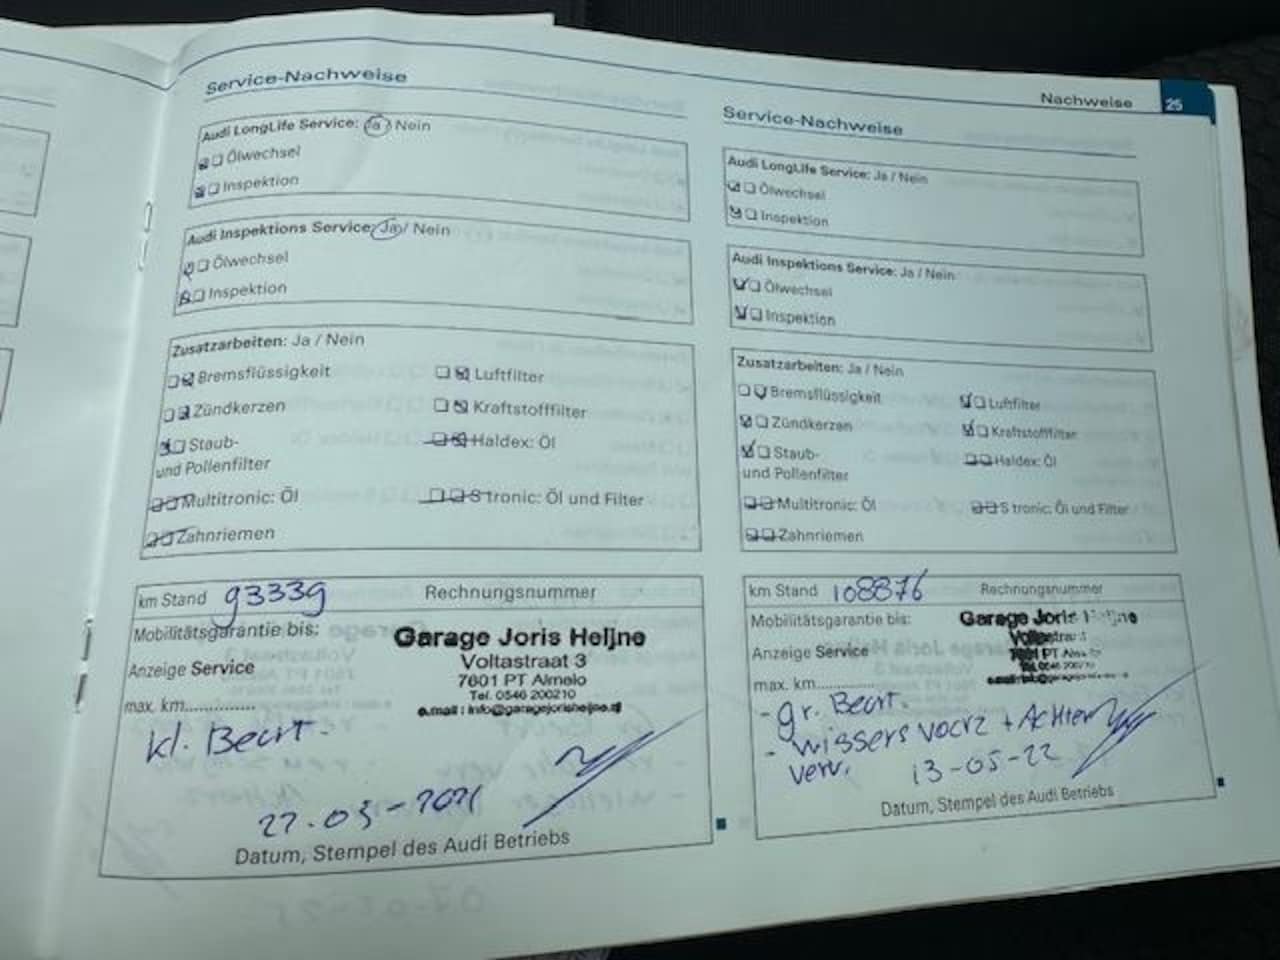 Nachweise 25
Service-Nachweise
Audi LongLife Service: Ja / Nein
Ölwechsel
Inspektion
Audi Inspektions Service: Ja / Nein
Ölwechsel
Inspektion
Zusatzarbeiten: Ja / Nein
Bremsflüssigkeit Luftfilter
Zündkerzen Kraftstofffilter
Staub- Haldex: Öl
und Pollenfilter
Multitronic: Öl S tronic: Öl und Filter
Zahnriemen
km Stand 93339 Rechnungsnummer
Mobilitätsgarantie bis: Garage Joris Heijne
Voltastraat 3
Anzeige Service 7601 PT Almelo
Tel. 0546 200210
max. km.............. e.mail : info@garagejorisheijne.nl
kl. Beurt.
22-03-2021
Datum, Stempel des Audi Betriebs
Service-Nachweise
Audi LongLife Service: Ja / Nein
Ölwechsel
Inspektion
Audi Inspektions Service: Ja / Nein
Ölwechsel
Inspektion
Zusatzarbeiten: Ja / Nein
Bremsflüssigkeit Luftfilter
Zündkerzen Kraftstofffilter
Staub- Haldex: Öl
und Pollenfilter
Multitronic: Öl S tronic: Öl und Filter
Zahnriemen
km Stand 108876 Rechnungsnummer
Mobilitätsgarantie bis: Garage Joris Heijne
Voltastraat
Anzeige Service 7601 PT Almelo
Tel. 0546 200210
max. km..............
- gr. Beurt.
- wissers voorz + Achter
verv. 13-05-22
Datum, Stempel des Audi Betriebs